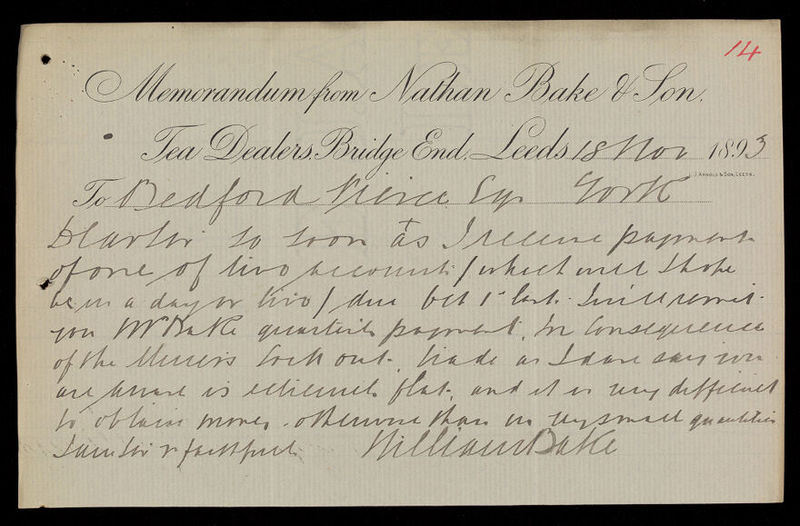 14
Memorandum from Nathan Bake & Son.
Tea Dealers. Bridge End. Leeds 18 Nov 1893
J. Arnold & Son, Leeds.
To Bedford Pierce Esqr York
Dear Sir So soon as I receive payment
of one of two accounts (which will I hope
be in a day or two) due Oct 1st last. I will remit
you Mr Bake quarterly payment. In consequence
of the Miners lock out. trade as I dare say you
are aware is extremely flat. and it is very difficult
to obtain money. otherwise than in very small quantities
I am Sir Yr faithfully William Bake